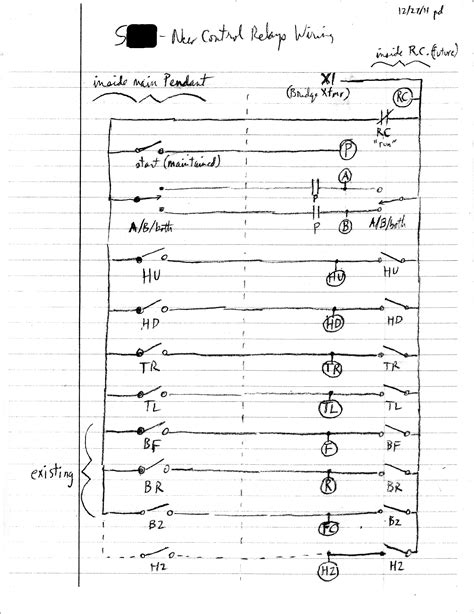 12/27/11 pd
S - New Control Relays Wiring
inside R.C. (future)
inside main Pendant
X1
(Bridge Xfmr)
RC
RC
"run"
start (maintained)
P
A
P
A/B/both
P
B
A/B/both
HU
HU
HU
HD
HD
HD
TR
TR
TR
TL
TL
TL
BF
F
BF
existing
BR
R
BR
B2
B2
H2
H2
H2